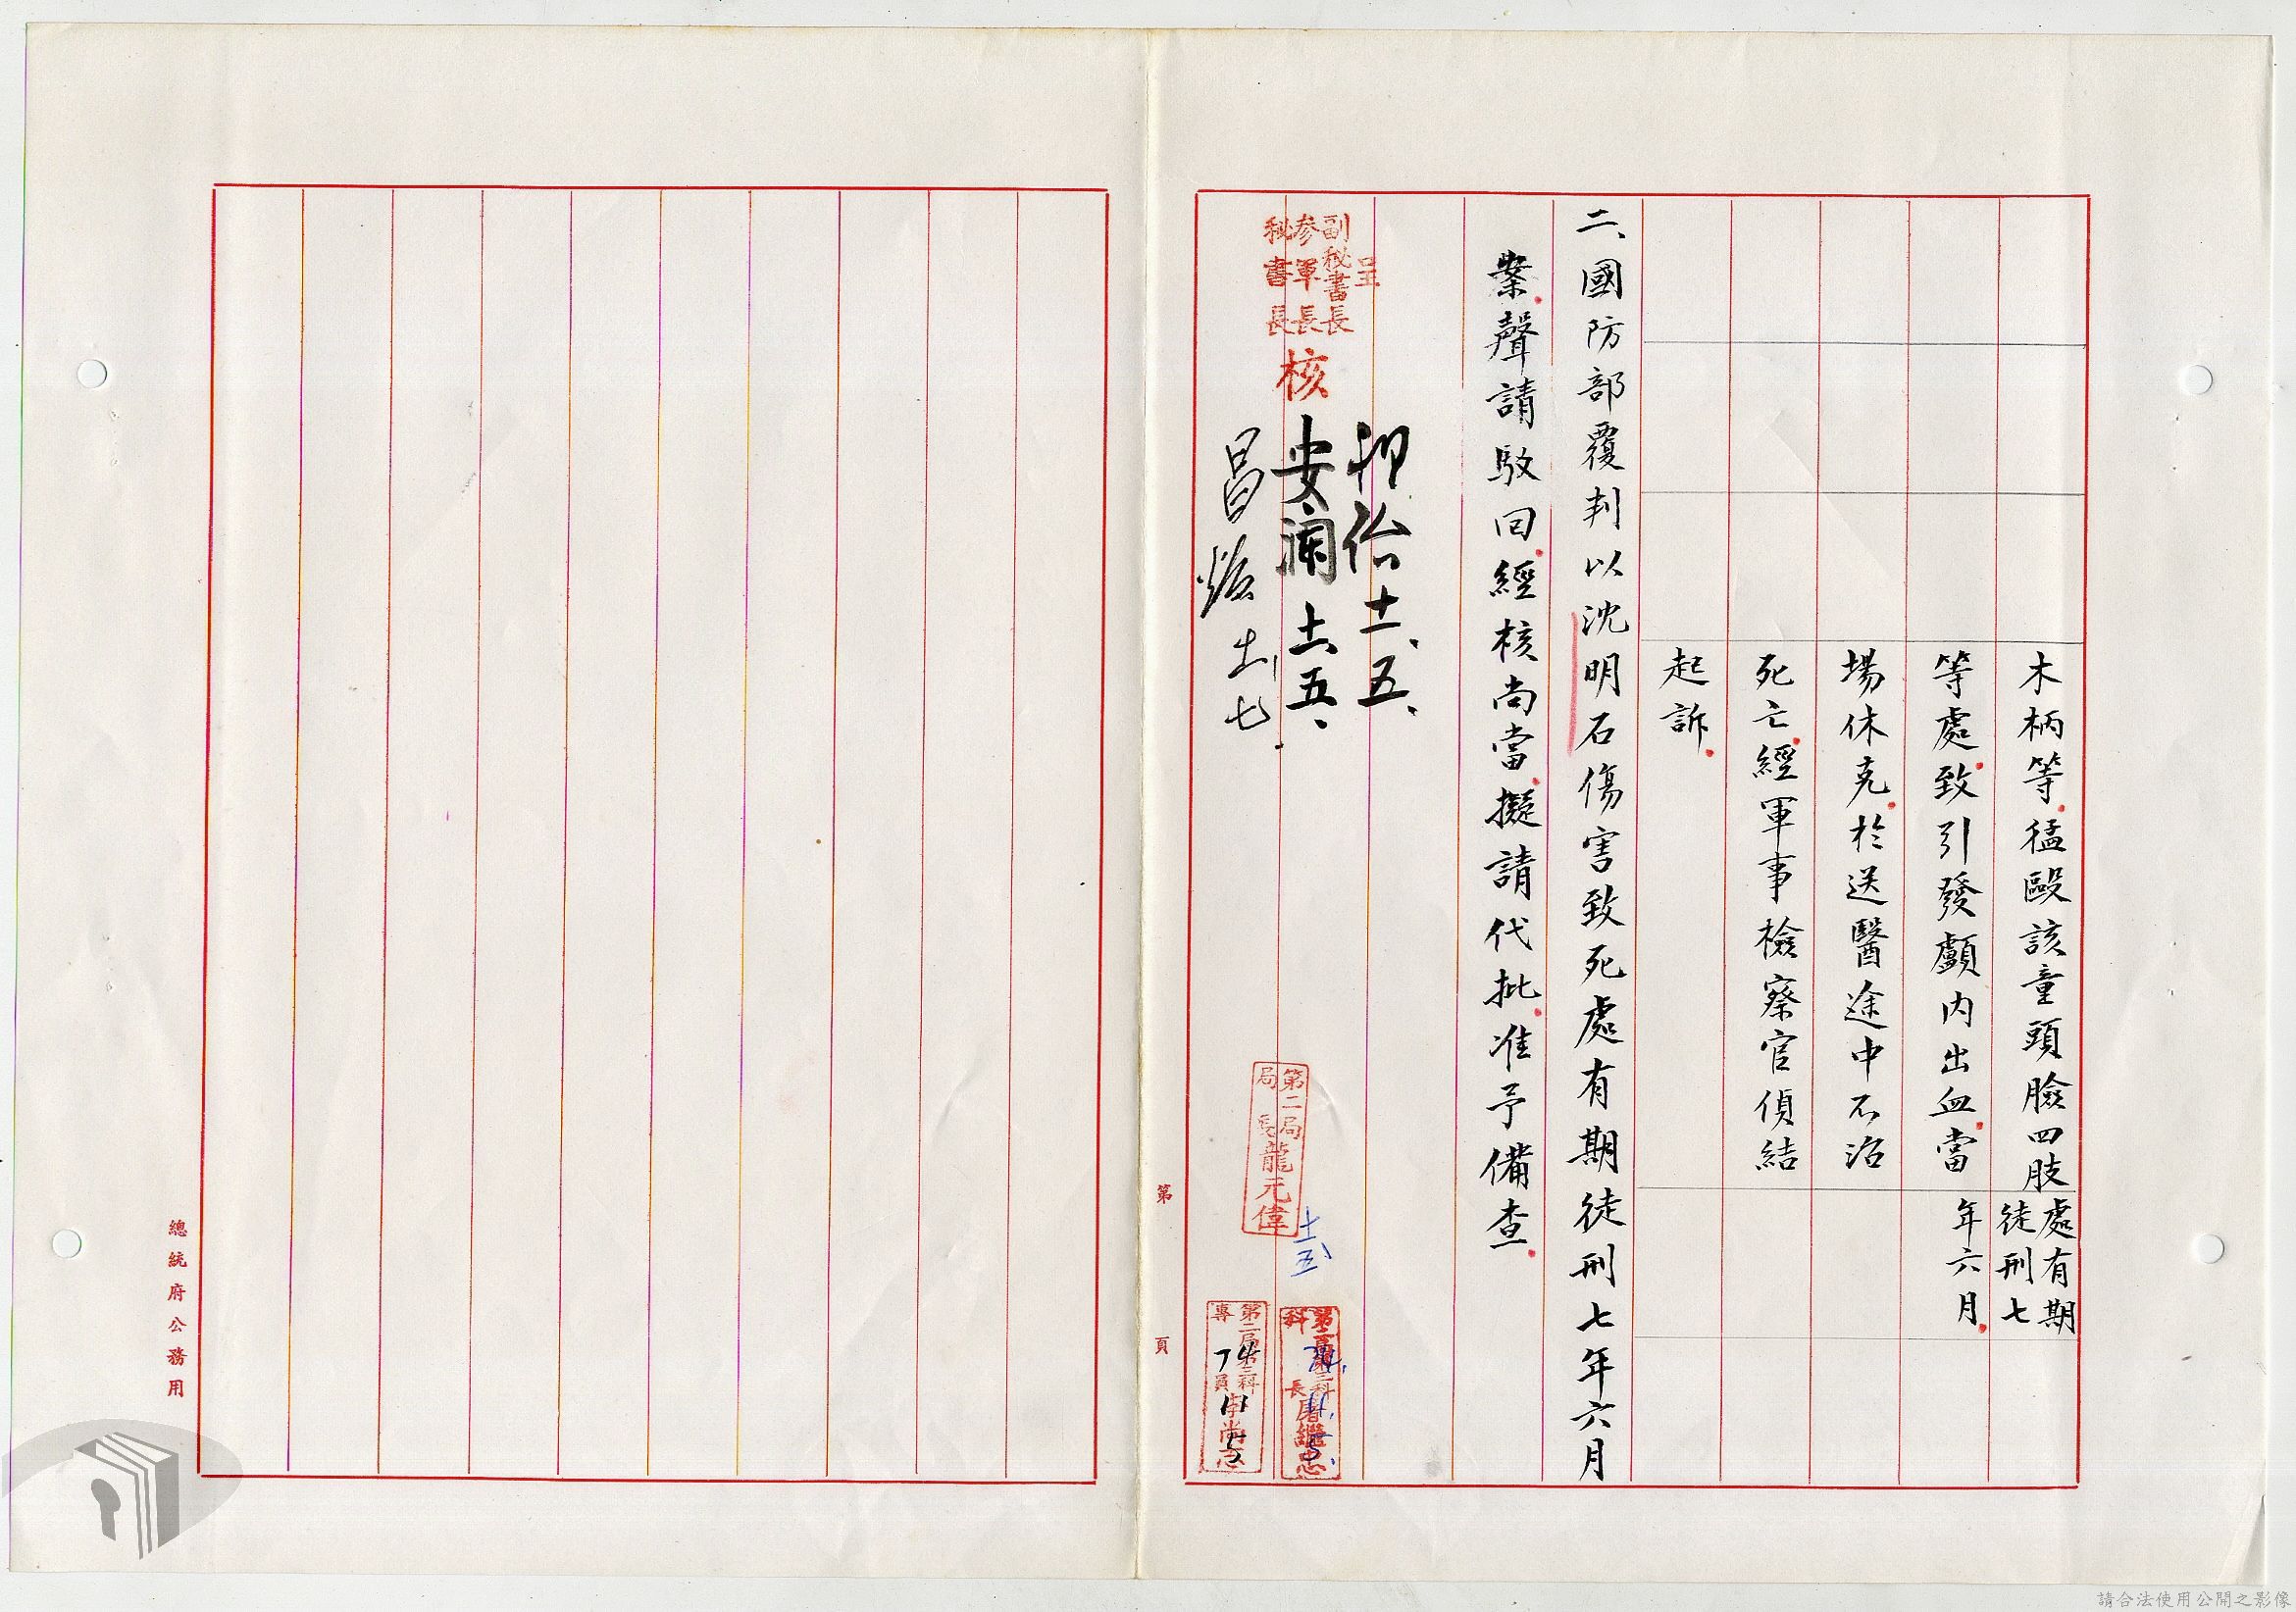 木柄等.猛毆該童頭臉四肢
等處.致引發顱內出血.當
場休克.於送醫途中不治
死亡.經軍事檢察官偵結
起訴.
處有期
徒刑七
年六月.
二、國防部覆判以沈明石傷害致死處有期徒刑七年六月
案.聲請駁回.經核尚當.擬請代批.准予備查.
呈
副秘書長
參軍長
秘書長
核
十一、五、
安瀾十一、五、
昌煥十一、七
第二局
局長龍元偉
十一、五
第二局第三科
科長屠繼忠
74. 11. 5.
第二局第三科
專員李尚志
74 11 5
第 頁
總統府公務用
請合法使用公開之影像